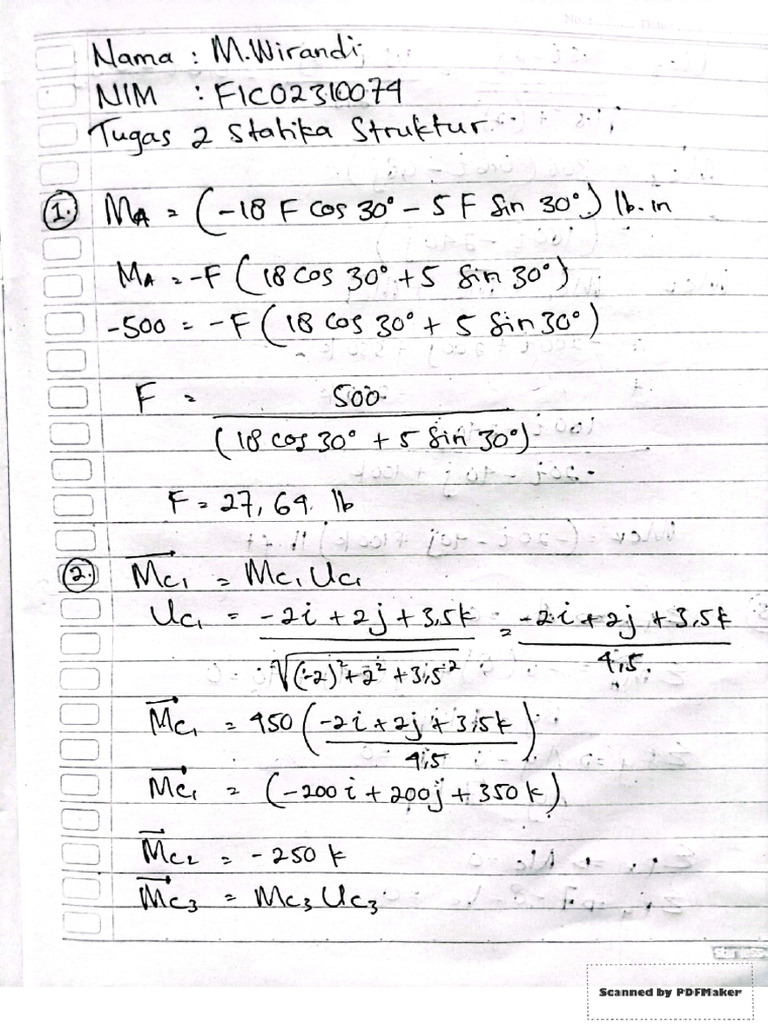 Nama : M.Wirandi
NIM : F1C02310074
Tugas 2 Statika Struktur
1. MA = (-18 F cos 30° - 5 F Sin 30°) lb.in
MA = -F (18 cos 30° + 5 Sin 30°)
-500 = -F (18 cos 30° + 5 Sin 30°)
F = 500
(18 cos 30° + 5 Sin 30°)
F = 27,64 lb
2. Mc1 = Mc1 Uc1
Uc1 = -2i + 2j + 3,5k = -2i + 2j + 3,5k
√(-2)² + 2² + 3,5² 4,5.
Mc1 = 450 (-2i + 2j + 3,5k)
4,5
Mc1 = (-200i + 200j + 350k)
Mc2 = -250 k
Mc3 = Mc3 Uc3
Scanned by PDFMaker